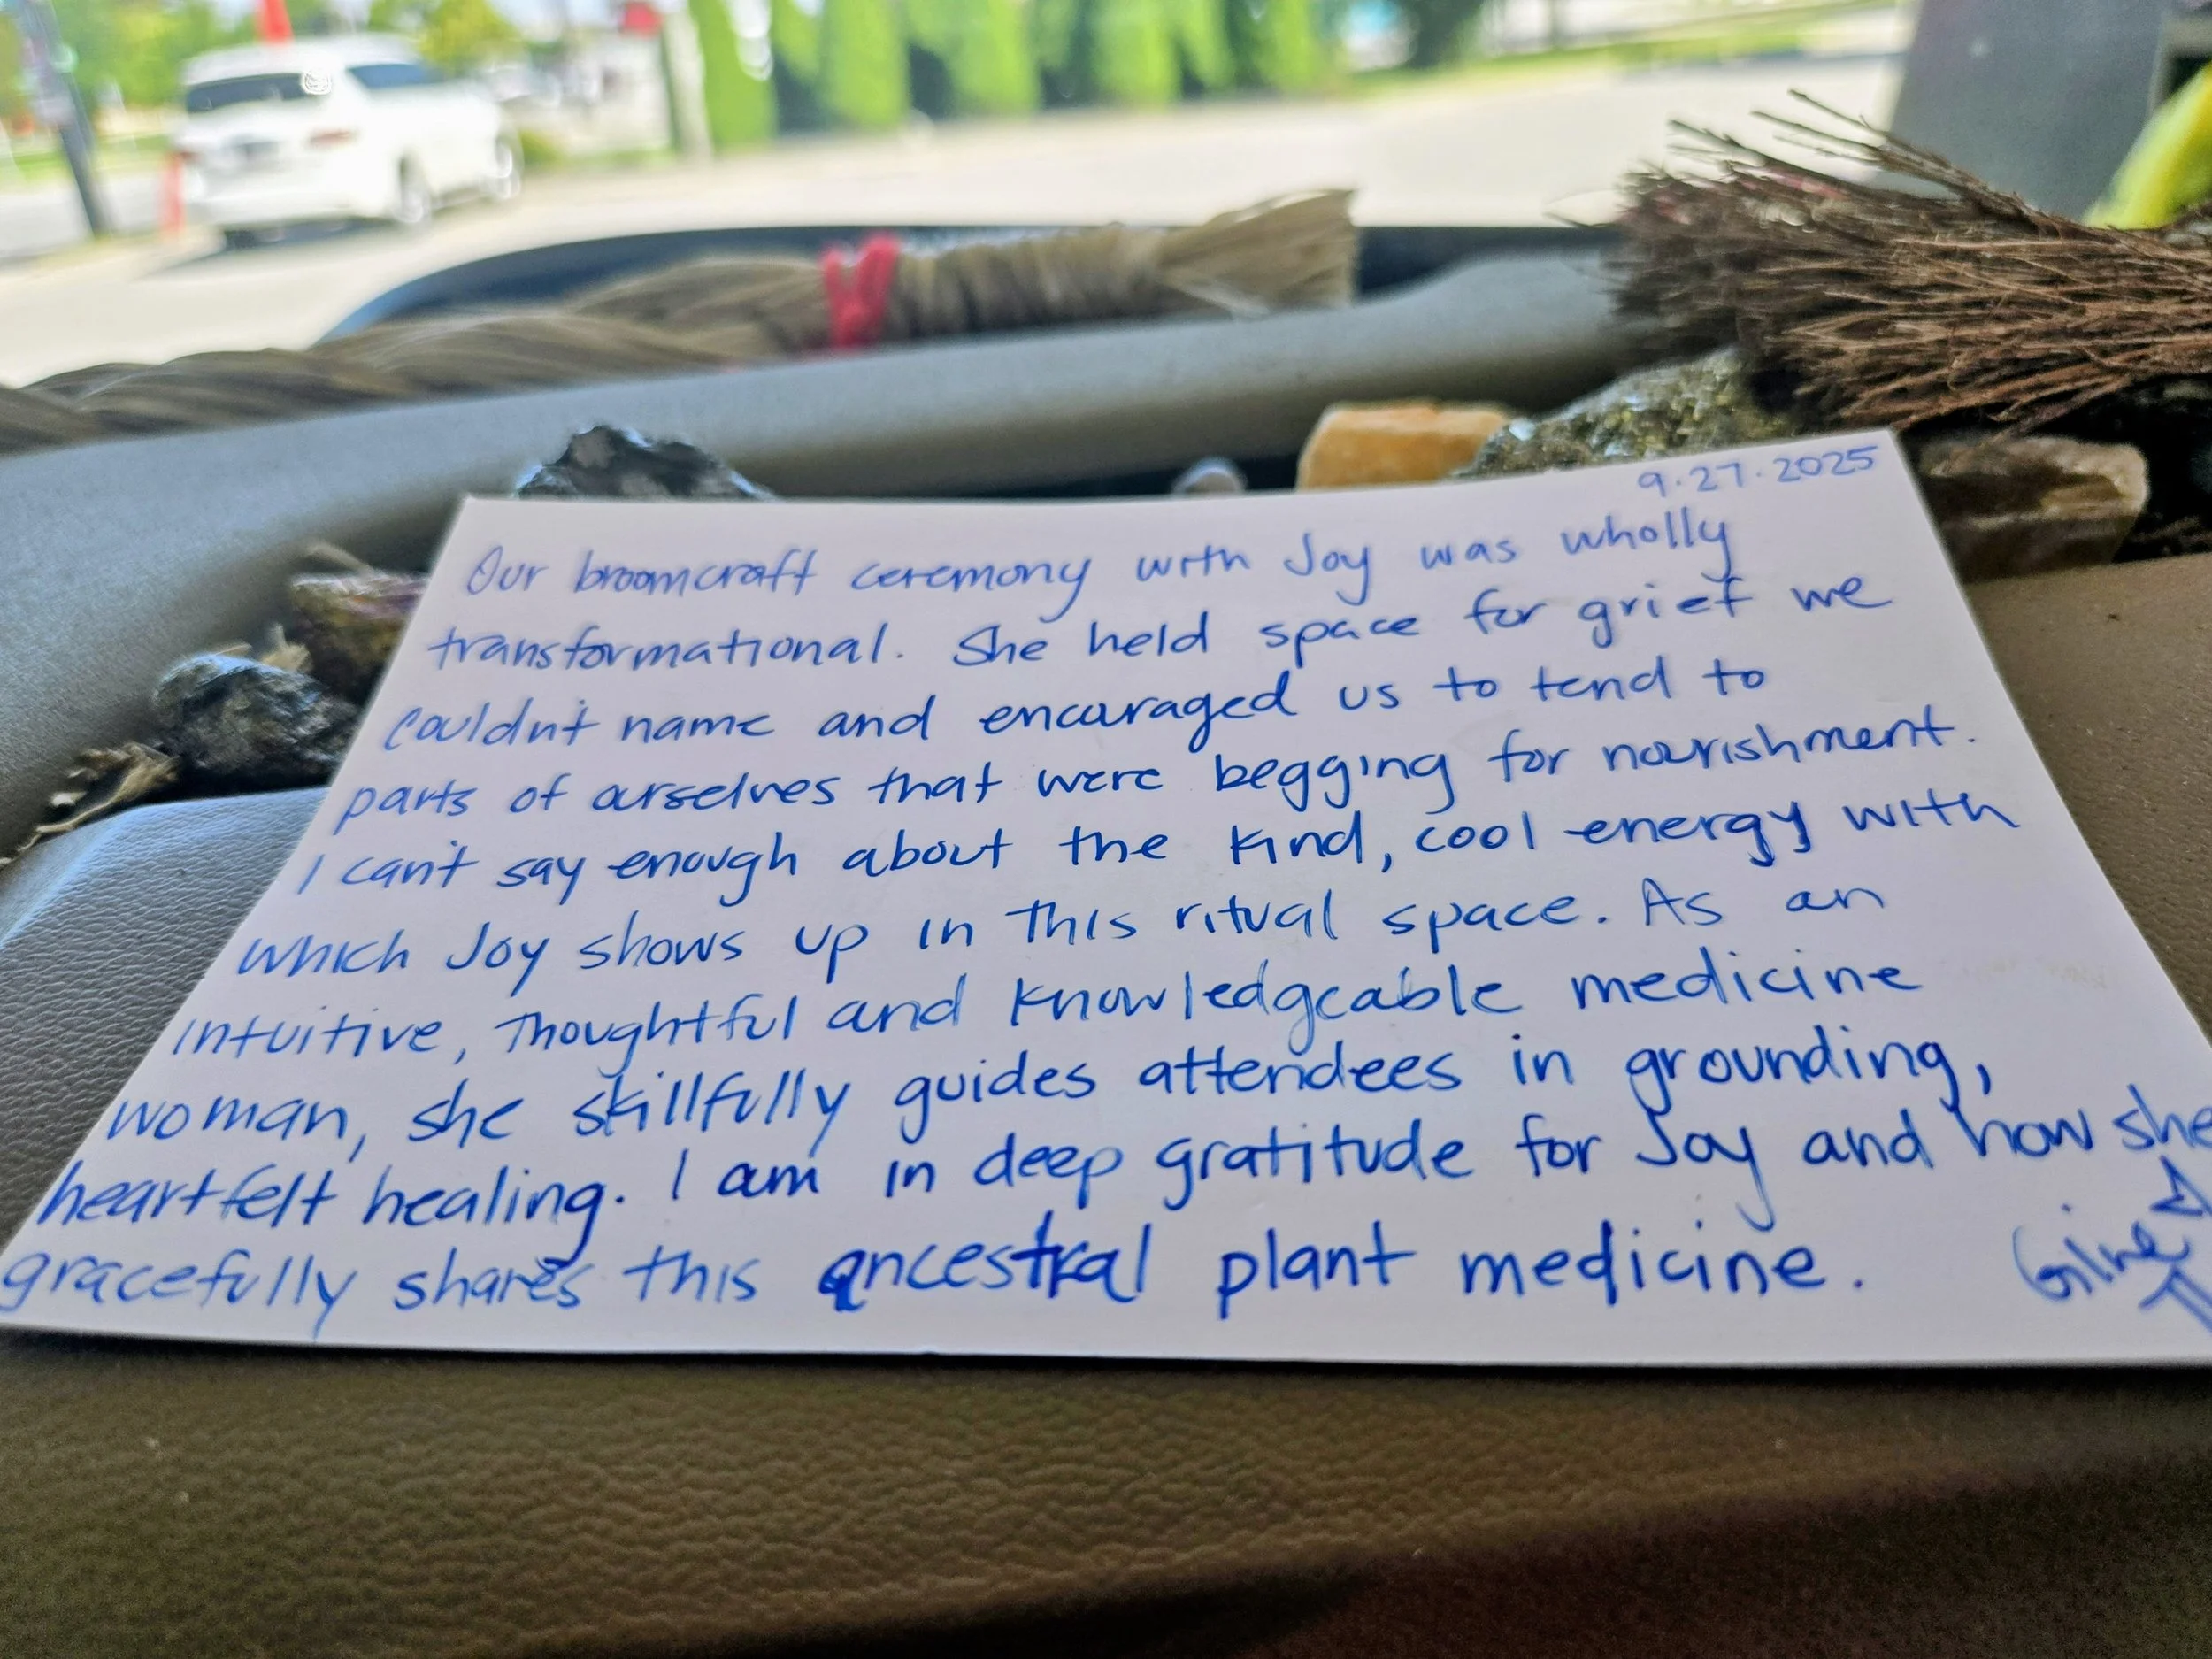 9.27.2025
Our broomcraft ceremony with Joy was wholly
transformational. She held space for grief we
couldn't name and encouraged us to tend to
parts of ourselves that were begging for nourishment.
I can't say enough about the kind, cool energy with
which Joy shows up in this ritual space. As an
intuitive, thoughtful and knowledgeable medicine
woman, she skillfully guides attendees in grounding,
heartfelt healing. I am in deep gratitude for Joy and how she
gracefully shares this ancestral plant medicine.